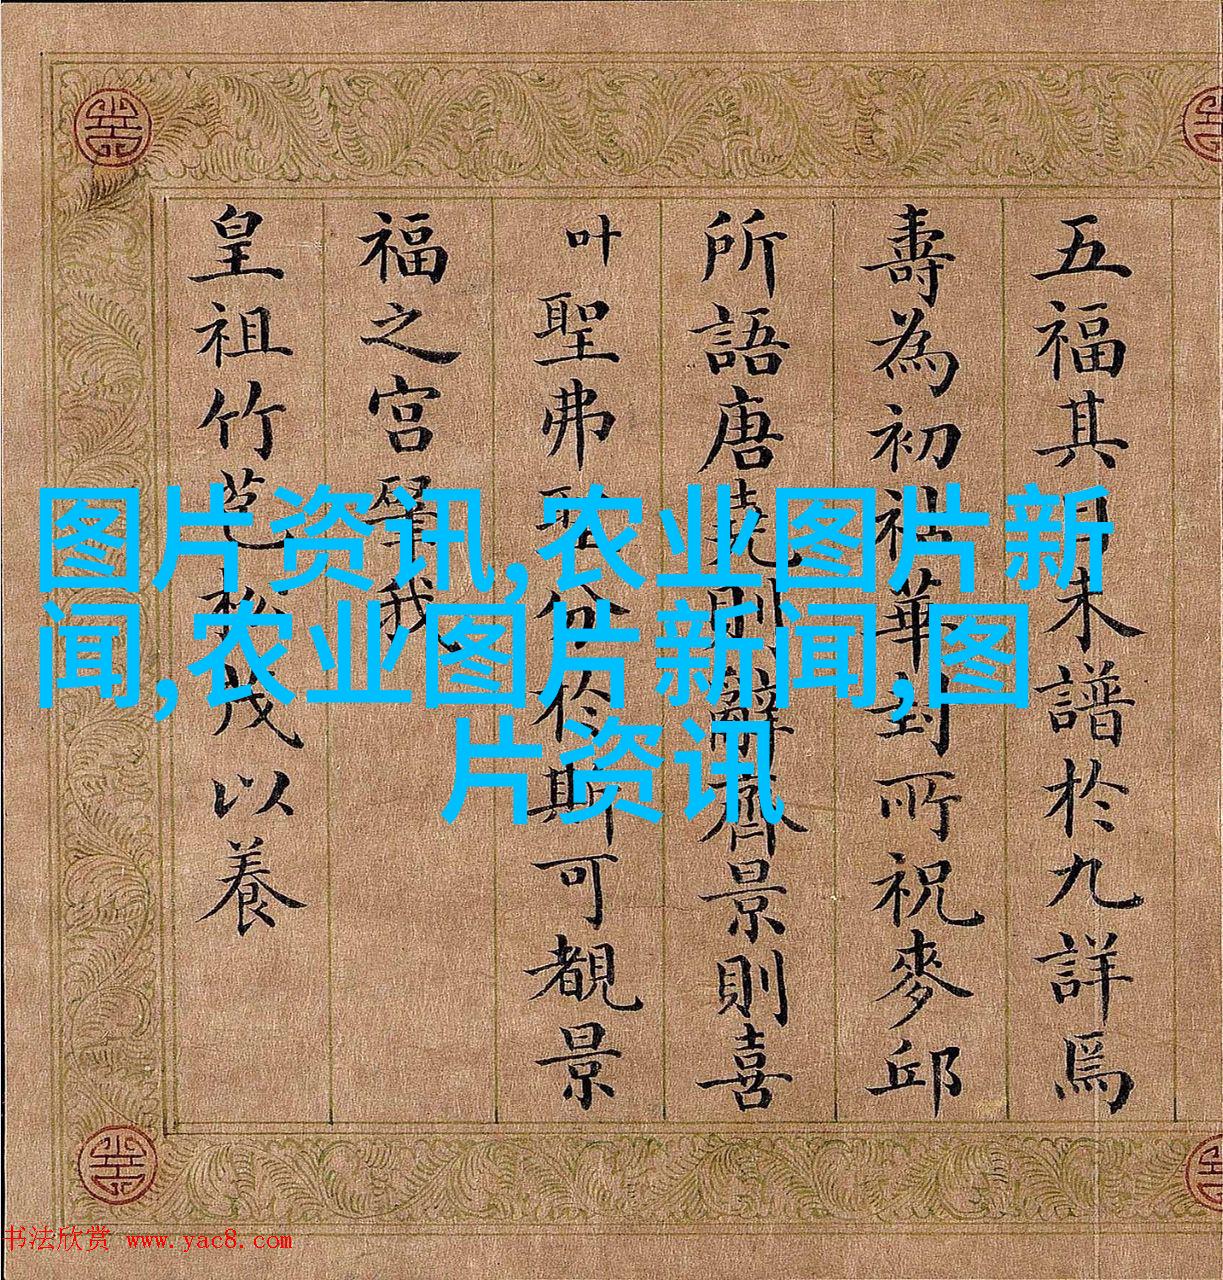 五福其目未譜於九詳焉
壽為初祉華封所祝麥邱
所語唐堯則辭齊景則喜
叶聖弗聖分於斯可覩景
福之宮肇我
皇祖竹苞松茂以養
图片资讯,农业图片新
闻,农业图片新闻,图
片资讯
书法欣赏 www.yac8.com